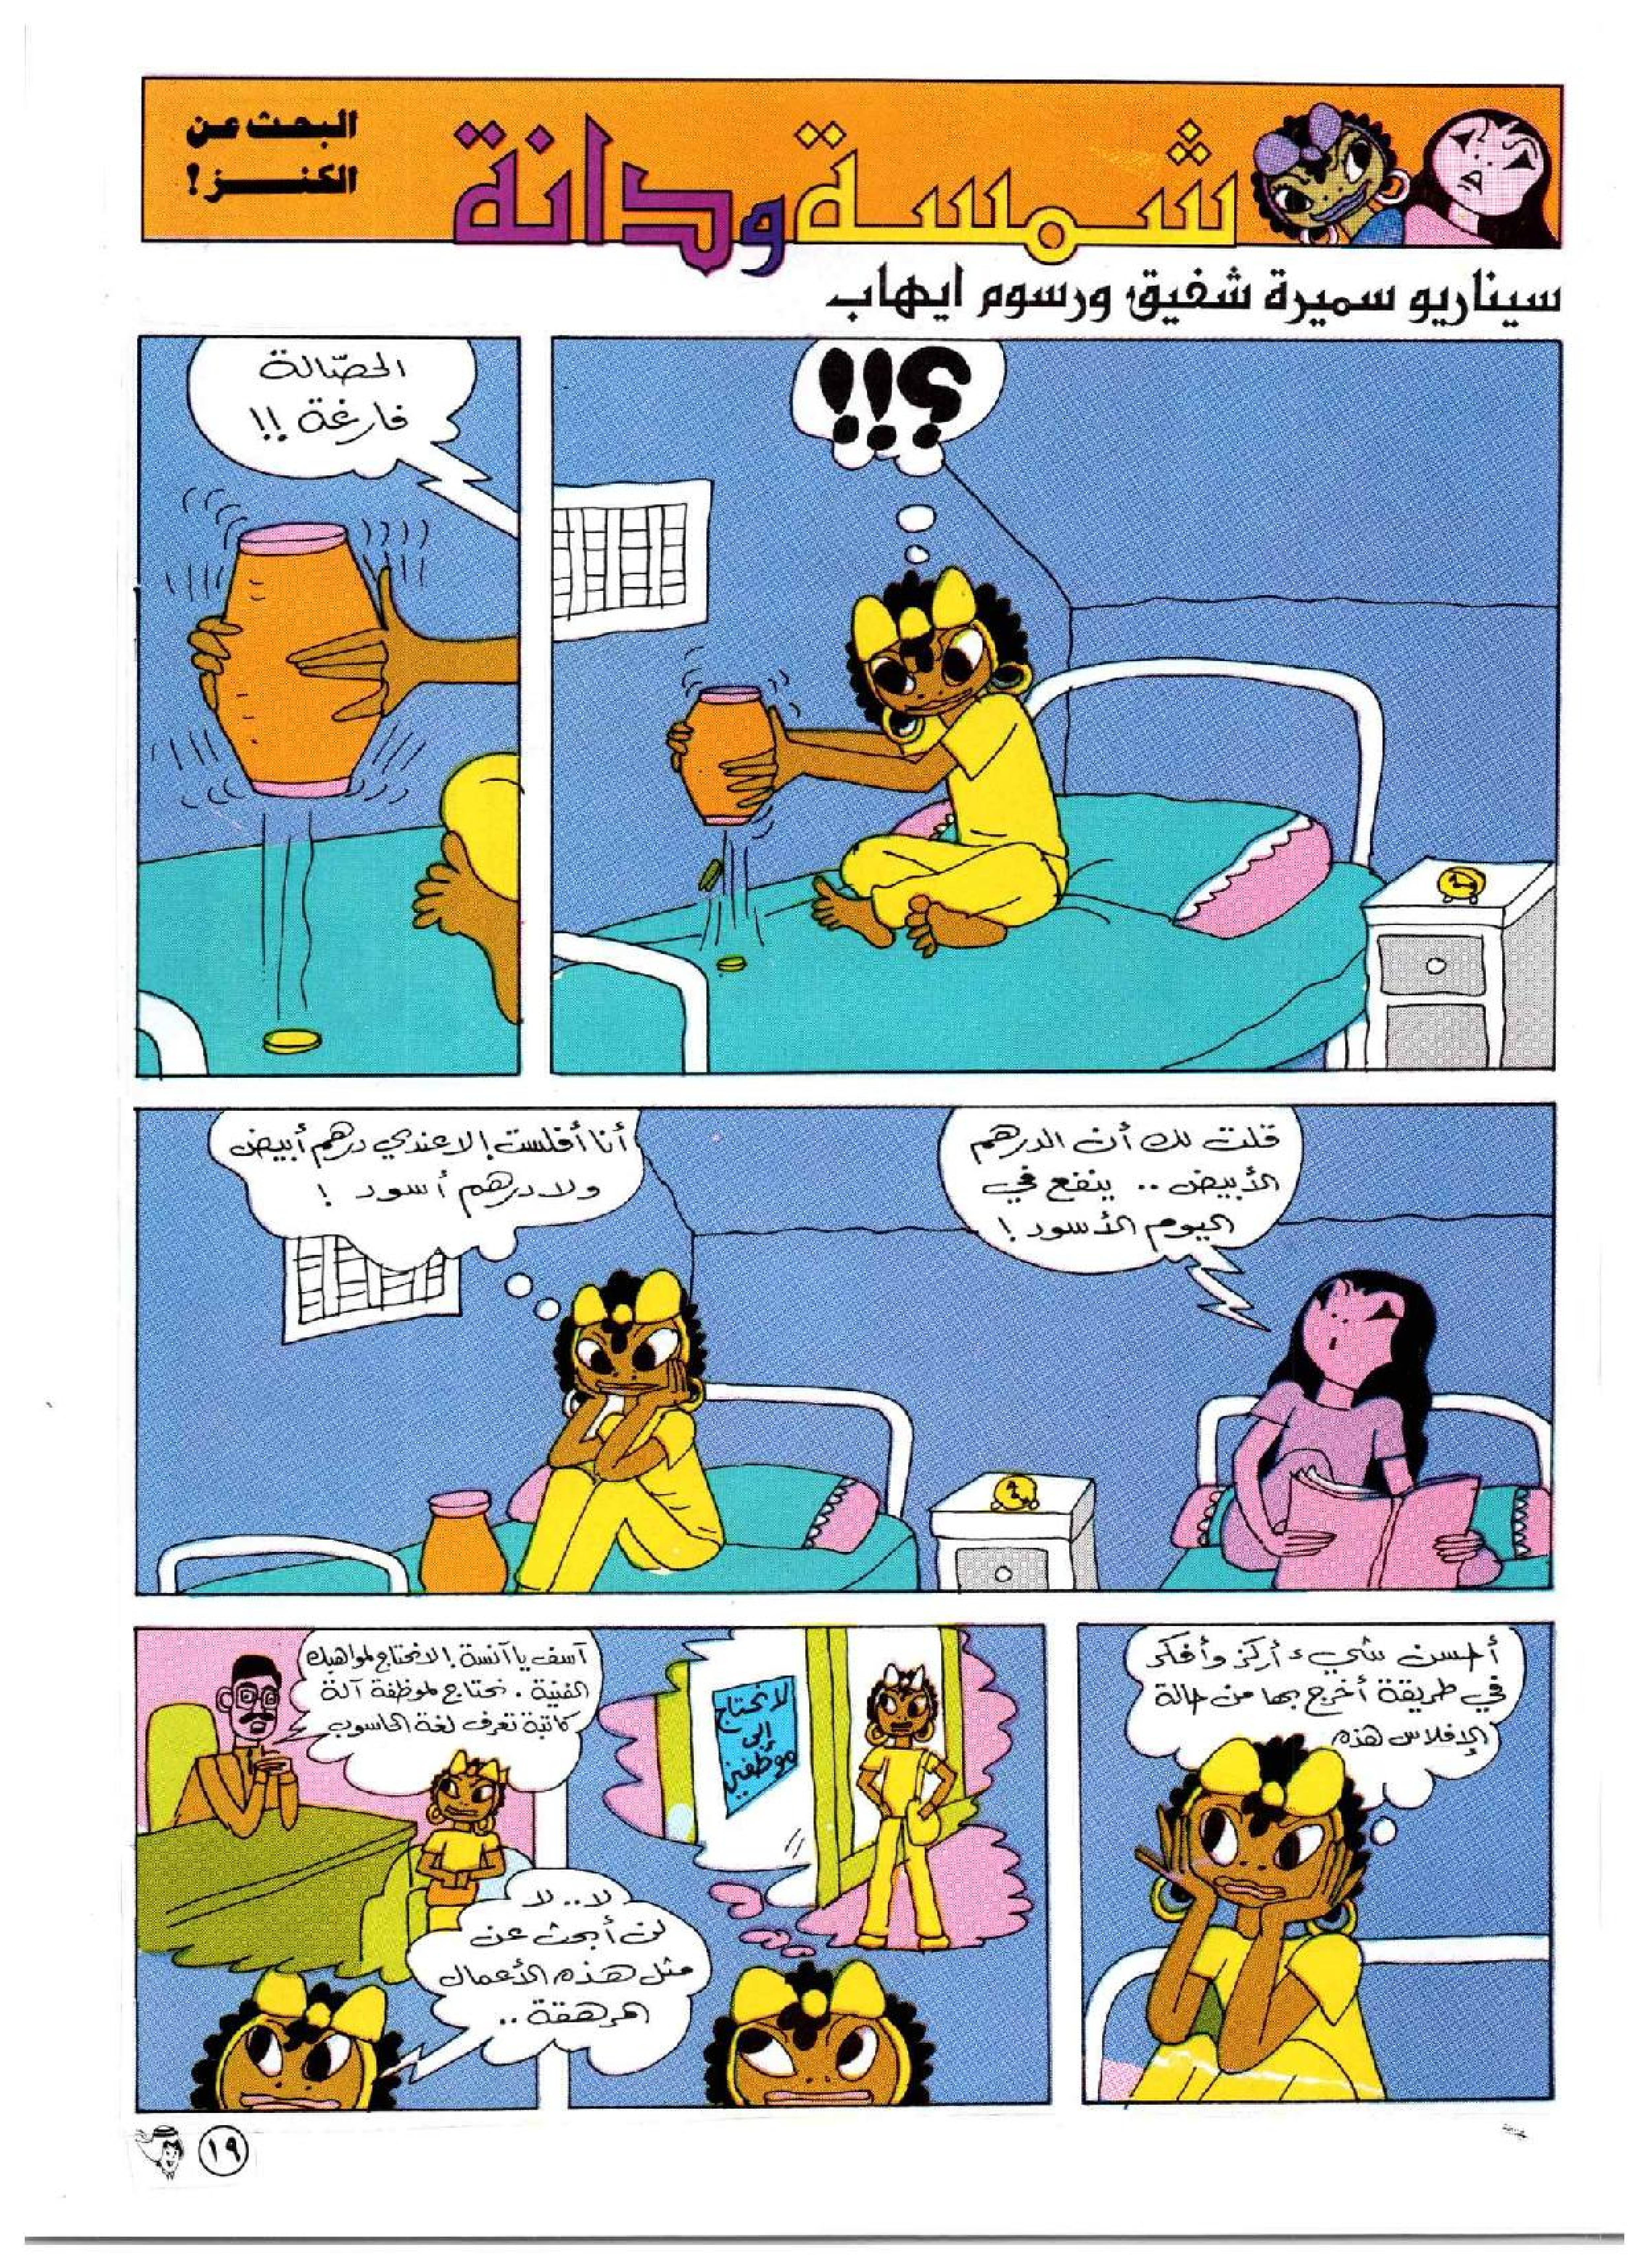 البحث عن
الكنـــز!
شمسة ودانة
سيناريو سميرة شفيق، ورسوم ايهاب
؟!!
الحصّالة
فارغة !!
قلت لك أن الدرهم
الأبيض .. ينفع في
اليوم الأسود !
أنا أفلست! لا عندي درهم أبيض
ولا درهم أسود !
أحسن شيء أركز وأفكر
في طريقة أخرج بها من حالة
الإفلاس هذه
لا نحتاج
إلى
موظفين
آسف يا آنسة! لا نحتاج لمواهبك
الفنية . نحتاج لموظفة آلة
كاتبة تعرف لغة الحاسوب
لا .. لا
لن أبحث عن
مثل هذه الأعمال
المرهقة ..
١٩